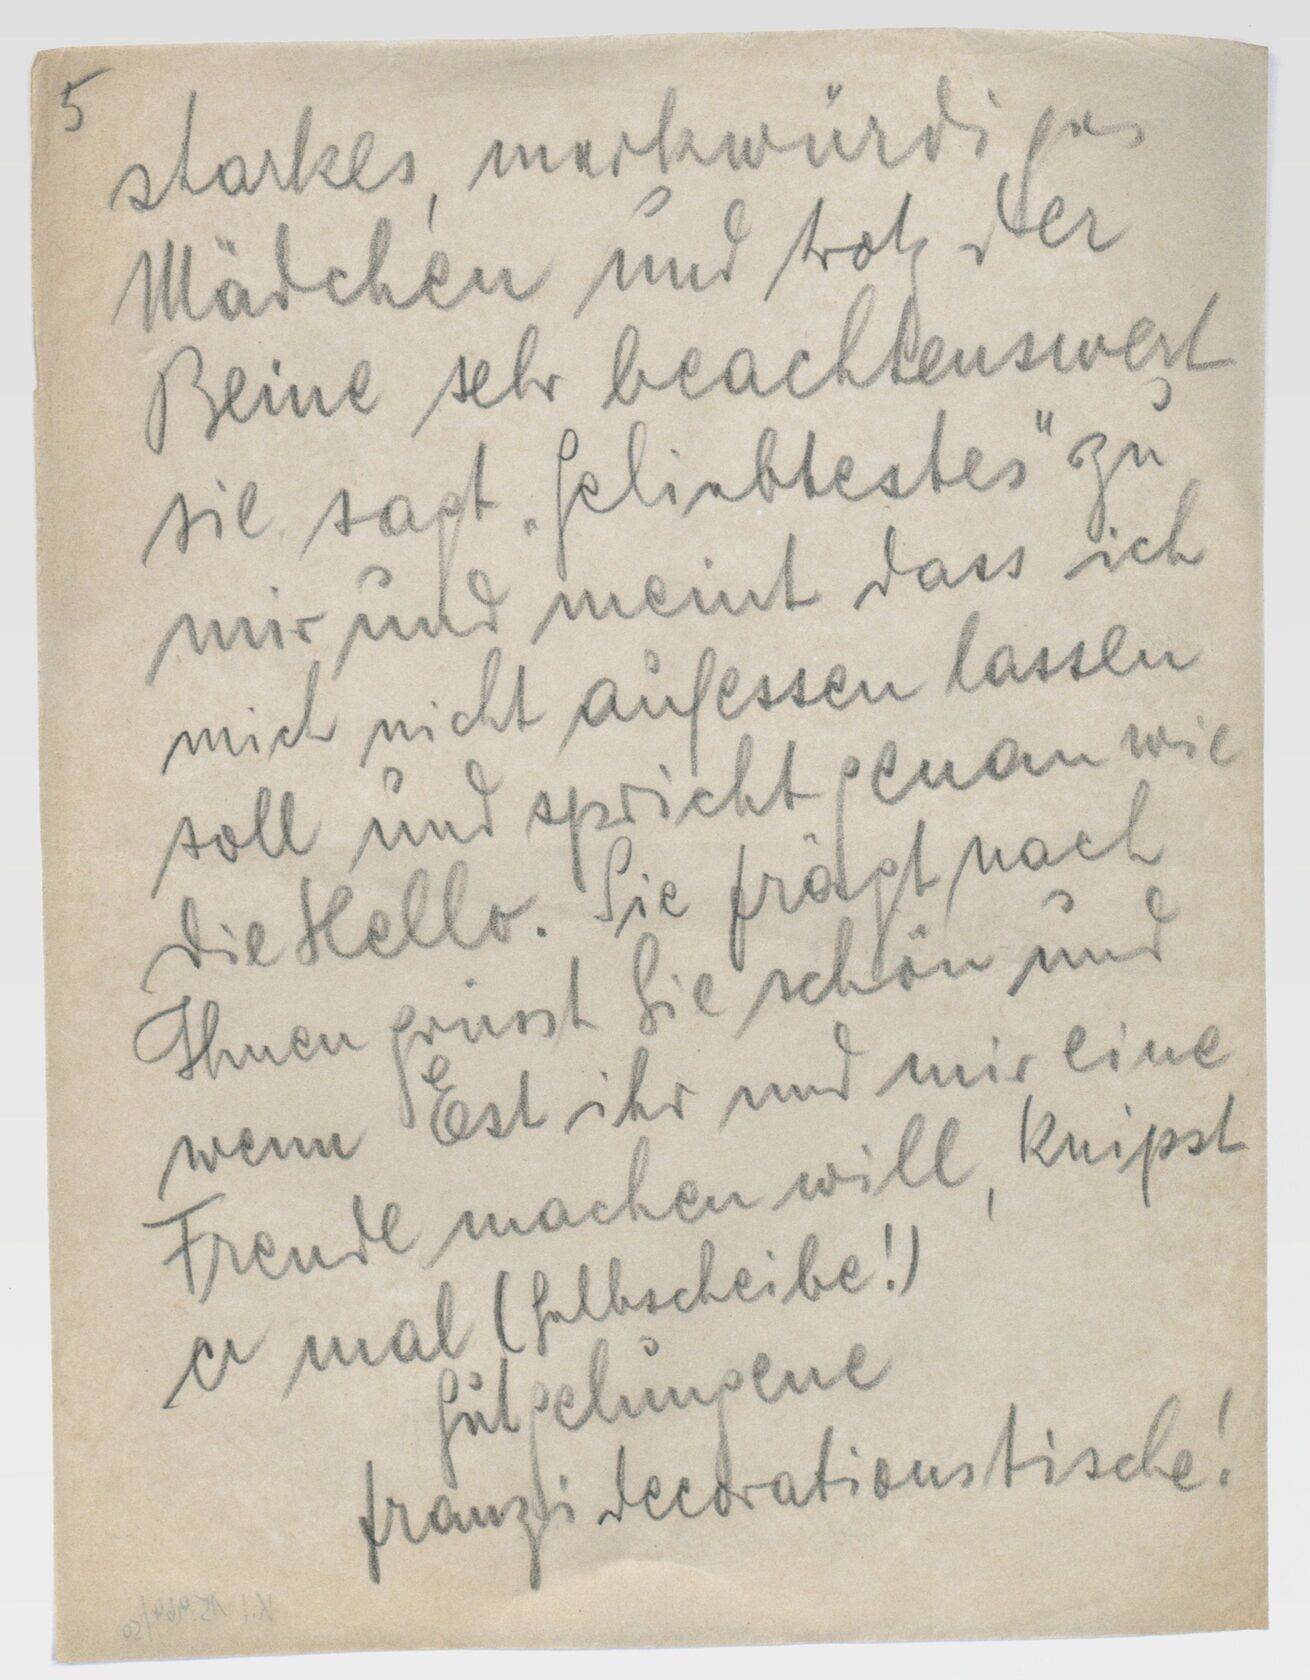 5
starkes, merkwürdiges
Mädchen und trotz der
Beine sehr beachtenswert
sie sagt „Geliebtestes" zu
mir und meint dass ich
mich nicht aufessen lassen
soll und spricht genau wie
die Hello. Sie frägt nach
Ihnen grüsst Sie schön und
wenn Est ihr und mir eine
Freude machen will, knipst
er mal (Gelbscheibe!)
Gutgelungene
franzi decorationstische!